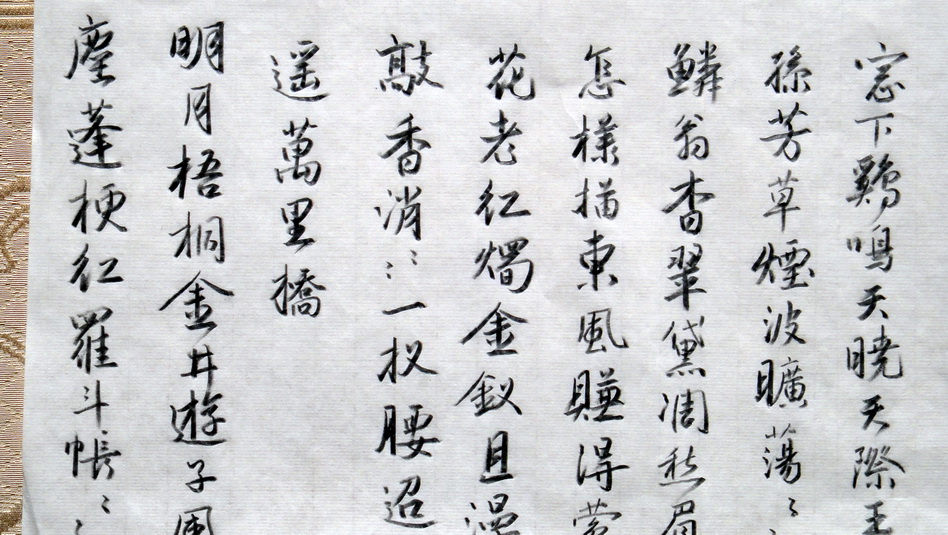 窓下鷄鳴天曉天際王
孫芳草煙波曠蕩
鱗翁杳翠黛凋愁眉
怎樣描東風賺得
花老紅燭金釵且漫
敲香消〻一杈腰迢
遥萬里橋
明月梧桐金井遊子風
塵蓬梗紅羅斗帳〻